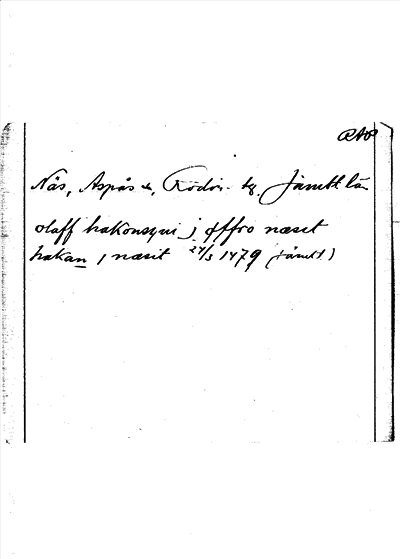 RAP
Näs, Aspås sn, Rödöns tg. Jämtl. län
olaff hakonszøni j øffro næset
hakan i næsit 24/3 1479 (Jämtl)